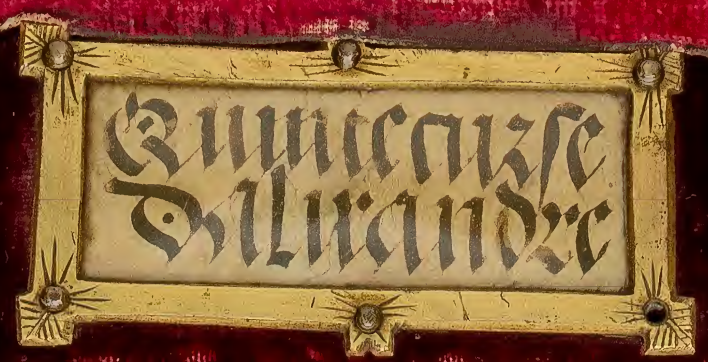 Quintecurse
Dalixandre